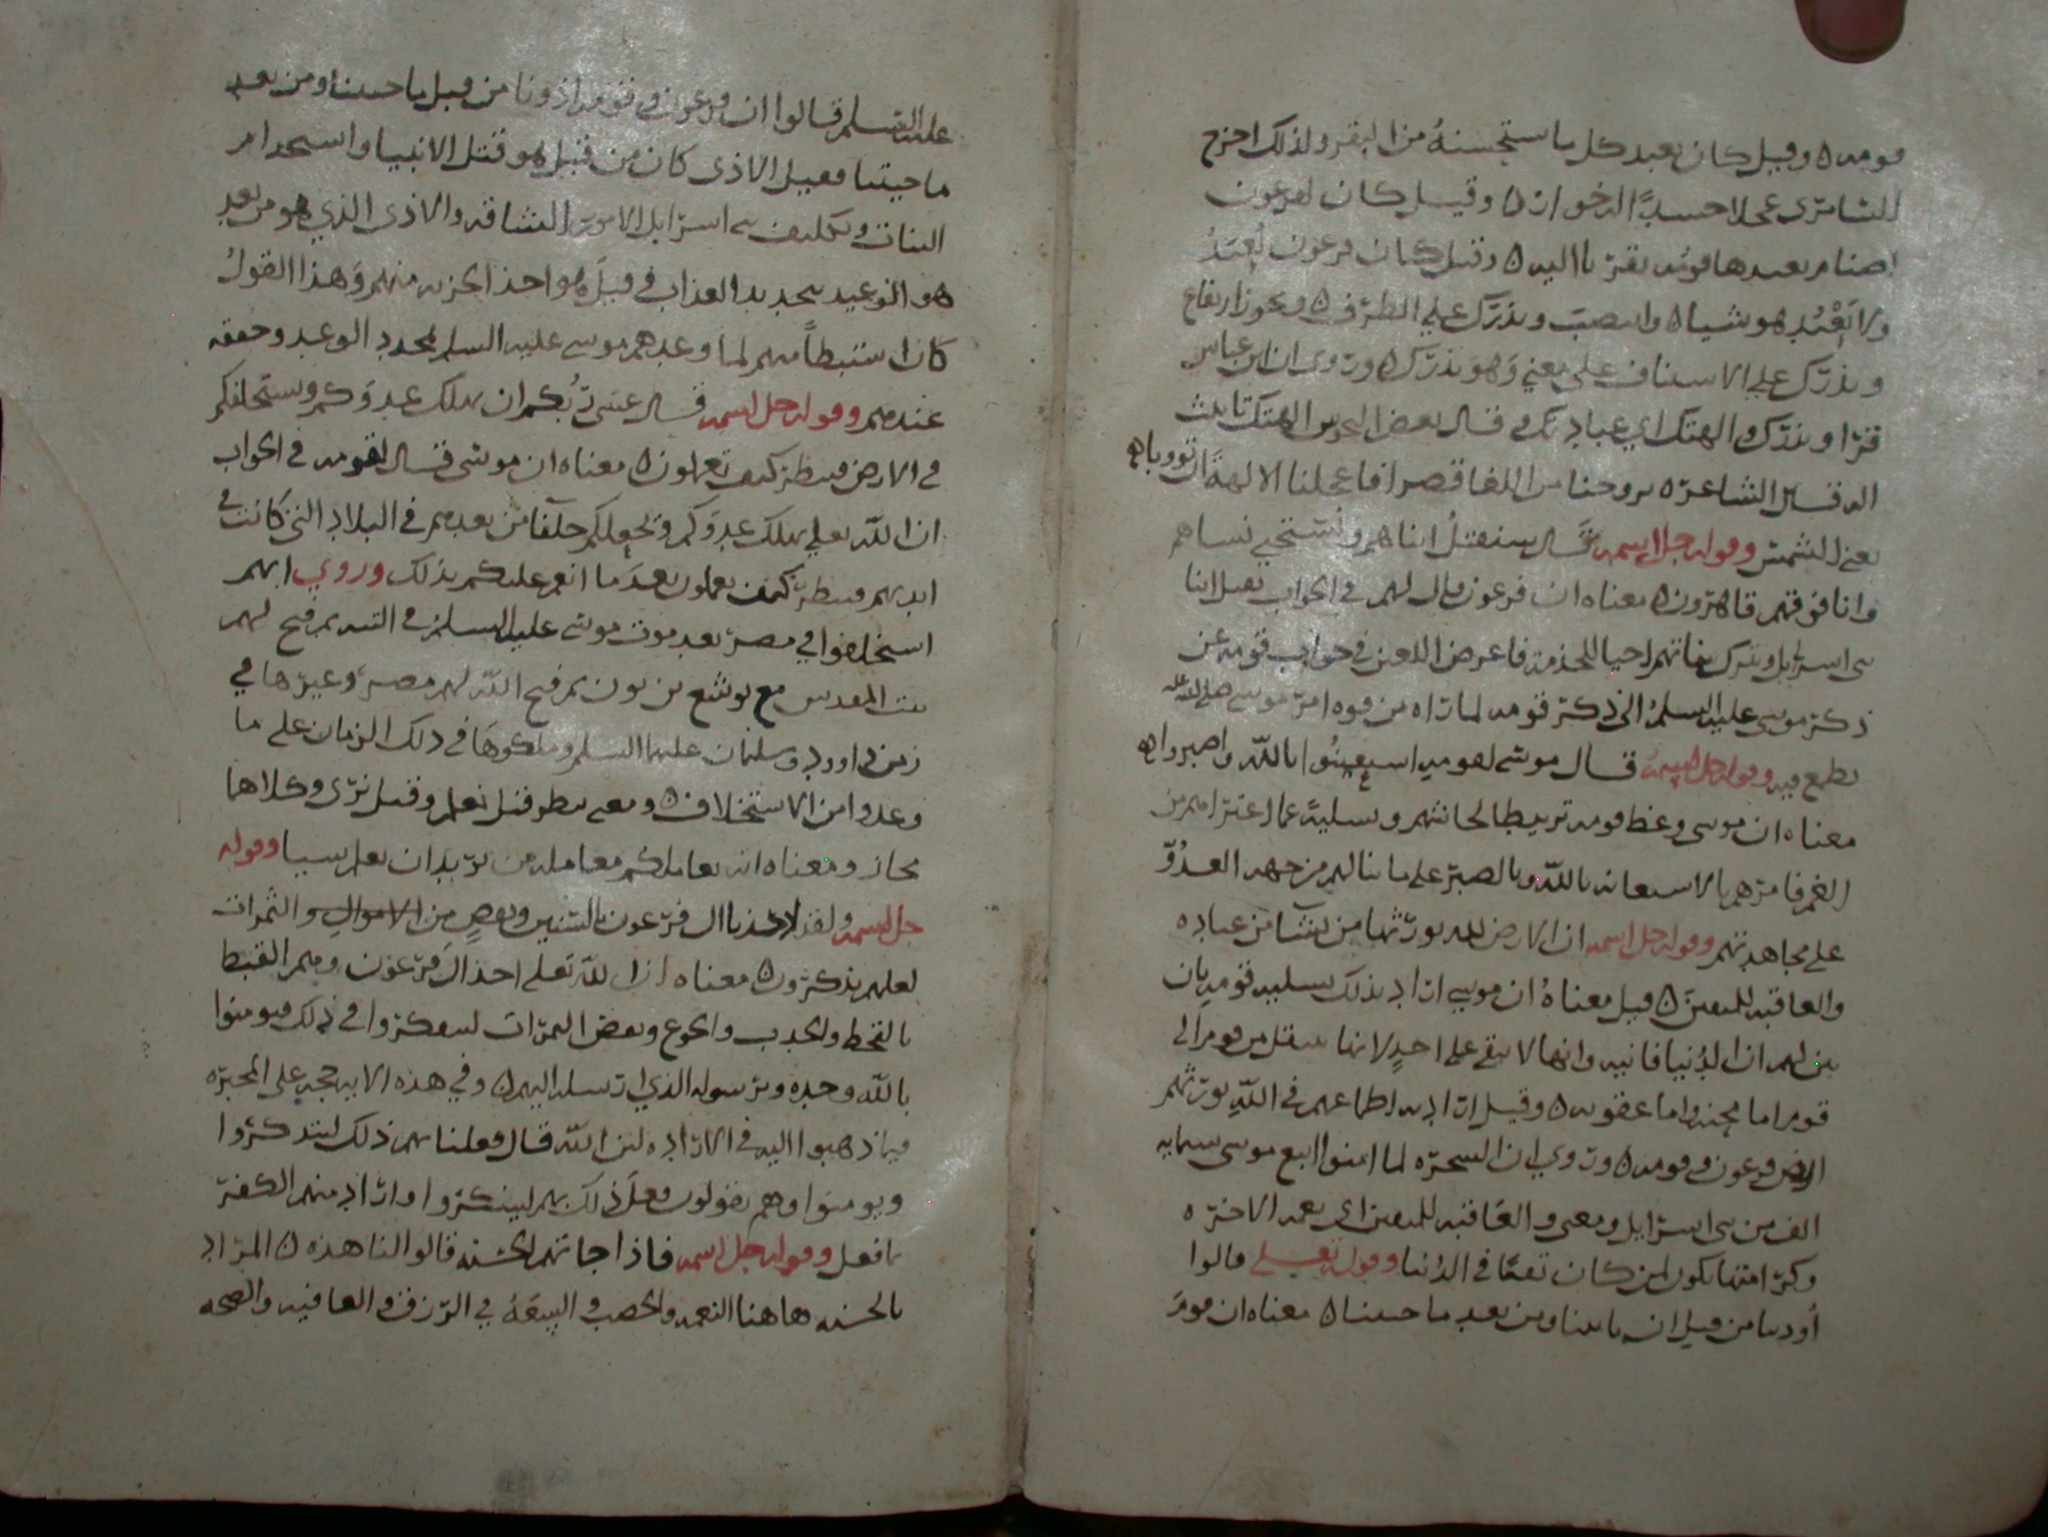 قومه ه وقيل كان يعبد كل ما استحسنه من البقر ولذلك اخرج
السامري عجلا جسدًا له خوار ه وقيل كان لفرعون
اصنام يعبدها قومه تقربا اليه ه وقيل كان فرعون يُعبَدُ
ولا يَعْبُد هو شيا ه وانتصب ويذرك على الظرف ه ويجوز ارتفاع
ويذرك على الاستناف على معنى وَهوَ يذرك ه وروى ان ابن عباس
قرا ويذرك والهتك اي عبادتك وقال بعض النحويين الهتك تانيث
اله قال الشاعر ه تروحنا من اللعبا قصرا فاعجلنا الالهة ان تووبا ه
يعني الشمس وقوله جل اسمه قال سنقتل ابناهم ونستحيي نساهم
وانا فوقهم قاهرون ه معناه ان فرعون قال لهم في الجواب نقتل ابنا
بني اسرايل ونترك بناتهم احيا للخدمة فاعرض اللعين في جواب قومه عن
ذكر موسى عليه السلم الى ذكر قومه لما راه من قوة امر موسى صلى الله عليه
يطمع فيه وقوله جل اسمه قال موسى لقومه استعينُوا بالله واصبروا ه
معناه ان موسى وعظ قومه تربيطا لجاشهم وتسليةً عما اعتراهم من
الغم فامرهم بالاستعانه بالله وبالصبر على ما ينالهم من جهه العدُوّ
على مجاهدتهم وقوله جل اسمه ان الارض لله يورثها من يشا من عباده
والعاقبه للمتقين ه قيل معناهُ ان موسى اراد بذلك تسليه قومه بان
بين لهم ان الدُنيا فانيه وانها لا تبقى على احدٍ لانها تنتقل من قوم الى
قوم اما محنه واما عقوبه ه وقيل اراد به اطماعهم في اللّهِ يورثهم
ارض فرعون وقومه ه وروي ان السحره لما امنوا اتبع موسى ستمايه
الف من بني اسرايل ومعنى والعَاقبه للمتقين اي نعمه الاخره
وكرامتها تكون لمن كان تقيًا في الدُنيا وقوله تعلى قالوا
أوذينا من قبل ان تاتينا ومن بعد ما جيتنا ه معناه ان قومَ
عليه السلم قالوا ان فرعون وقومه اذونا من قبل ما جيتنا ومن بعد
ما جيتنا فقيل الاذى كان من قبل هو قتل الانبيا واستخدام
البنات وتكليف بني اسرايل الامور الشاقه والاذى الذي هو من بعد
هو التوعيد بتجديد العذاب وقيلَ هو اخذ الجزيه منهم وَهذا القولُ
كان استنبطاً منهم لما وعدهم موسى عليه السلم لمجدد الوعد وحققه
عندهم وقوله جل اسمه قال عسى ربُكم ان يهلك عدوَكم ويستخلفكم
في الارض فينظر كيف تعملون ه معناه ان موسى قال لقومه في الجواب
ان اللّه تعلى يهلك عدوَكم ويجعلكم خلفا من بعدهم في البلاد التي كانت في
ايديهم فينظر كيف تعملون بعدَما انعم عليكم بذلك وروي انهم
استخلفوا في مصر بعد موت موسى عليه السلم في التيه ثم فتح لهم
بيت المقدس مع يوشع بن نون ثم فتح اللّه لهم مصر وغيرها في
زمن داوود وسليمان عليهما السلم وملكوهَا في ذلك الزمان على ما
وعدوا من الاستخلاف ه ومعنى ينظر قيل يَعلم وقيل يرى وكلاهما
مجاز ومعناه انه يعاملكم معامله من يريد ان يعلم شيا وقوله
جل اسمه ولقد اخذنا ال فرعون بالسنين ونقصٍ من الاموال والثمرات
لعلهم يذكرون ه معناه ان اللّه تعلى اخذ الَ فرعَون وهم القبط
بالقحط والجدب والجوع وبعض الثمرات ليتفكروا في ذلك فيومنوا
باللّه وحده وبرَسوله الذي ارسله اليهم ه وفي هذه الايه حجه على المجبره
فيما ذهبوا اليه في الاراده لان اللّه قال فعلنا بهم ذلك ليتذكروا
ويومنوا وهم يقولون فعلَ ذلك بهم لينكروا واراد منهم الكفر
ما فعل وقوله جل اسمه فاذا جاتهم الحسنه قالوا لنا هذه ه المراد
بالحسنه هاهنا النعمه والخصب والسِعَهُ في الرزق والعافيه والصحه